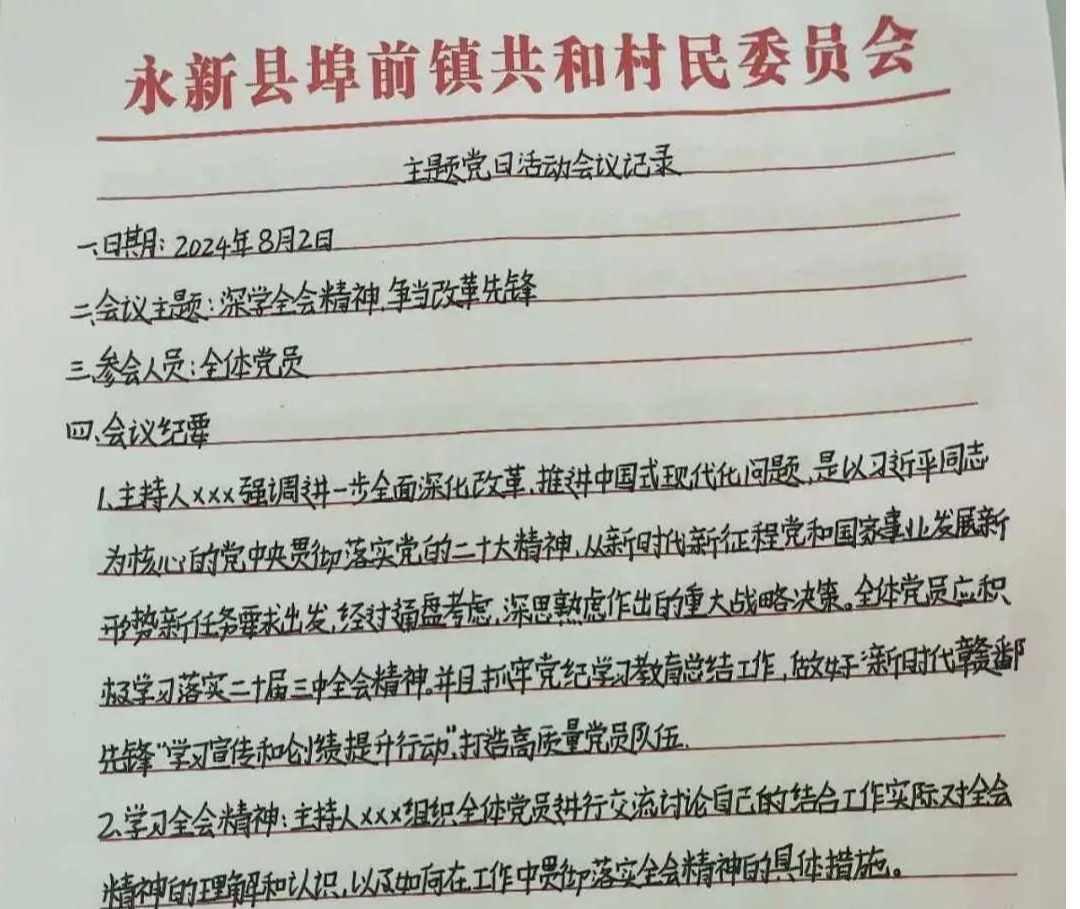 永新县埠前镇共和村民委员会
主题党日活动会议记录
一、日期：2024年8月2日
二、会议主题：深学全会精神，争当改革先锋
三、参会人员：全体党员
四、会议纪要
1、主持人xxx强调进一步全面深化改革，推进中国式现代化问题，是以习近平同志
为核心的党中央贯彻落实党的二十大精神，从新时代新征程党和国家事业发展新
形势新任务要求出发，经过通盘考虑，深思熟虑作出的重大战略决策。全体党员应积
极学习落实二十届三中全会精神。并且抓牢党纪学习教育总结工作，做好“新时代赣鄱
先锋”学习宣传和创绩提升行动”，打造高质量党员队伍.
2、学习全会精神：主持人xxx组织全体党员进行交流讨论自己的结合工作实际对全会
精神的理解和认识，以及如何在工作中贯彻落实全会精神的具体措施。